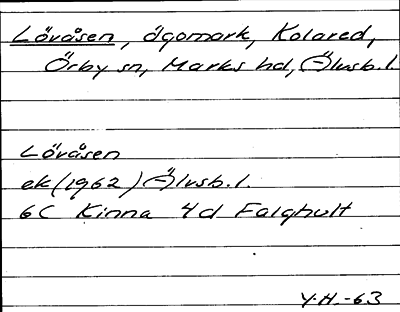 Lövåsen, ägomark, Kolared,
Örby sn, Marks hd, Älvsb. l.
Lövåsen
ek (1962) Älvsb. l.
6C Kinna 4d Falghult
Y.H.-63